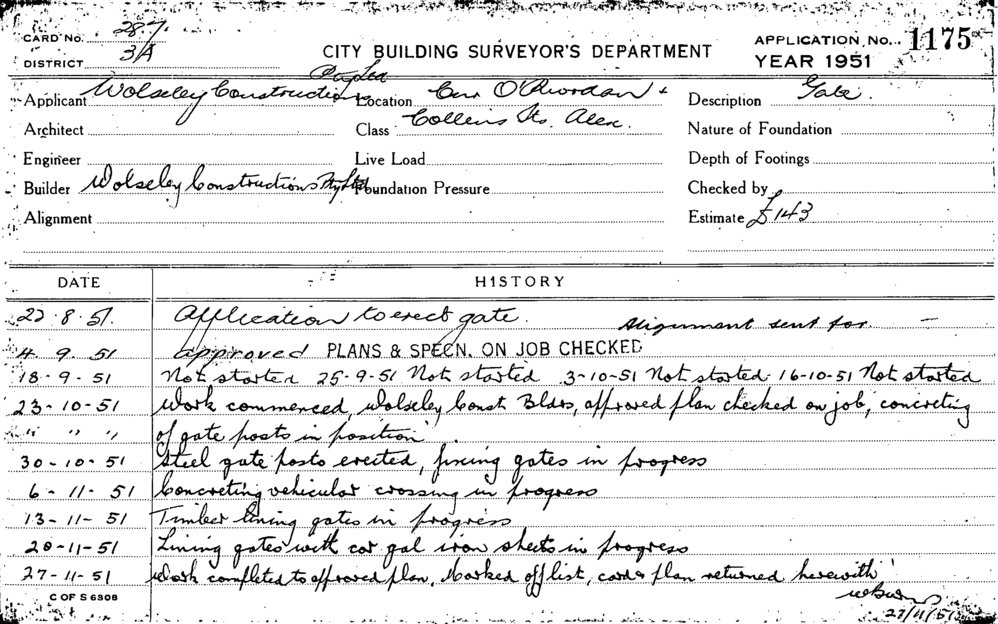 CARD No. 287
DISTRICT 3A
CITY BUILDING SURVEYOR'S DEPARTMENT
APPLICATION No. 1175
YEAR 1951
Applicant Wolseley Constructions Pty Ltd
Location Cnr O'Riordan +
Description Gate.
Architect
Class Collins Sts. Alex.
Nature of Foundation
Engineer
Live Load
Depth of Footings
Builder Wolseley Constructions Pty Ltd
Foundation Pressure
Checked by
Alignment
Estimate £143
DATE HISTORY
22.8.51. Application to erect gate. Alignment sent for.
4.9.51 approved PLANS & SPECN. ON JOB CHECKED
18-9-51 Not started 25-9-51 Not started 3-10-51 Not started 16-10-51 Not started
23-10-51 Work commenced, Wolseley Const Bldrs, approved plan checked on job, concreting
" " " of gate posts in position
30-10-51 Steel gate posts erected, fixing gates in progress
6-11-51 Concreting vehicular crossing in progress
13-11-51 Timber lining gates in progress
20-11-51 Lining gates with cor gal iron sheets in progress
27-11-51 Work completed to approved plan. Marked off list, card & plan returned herewith
C OF S 6308
27/11/51